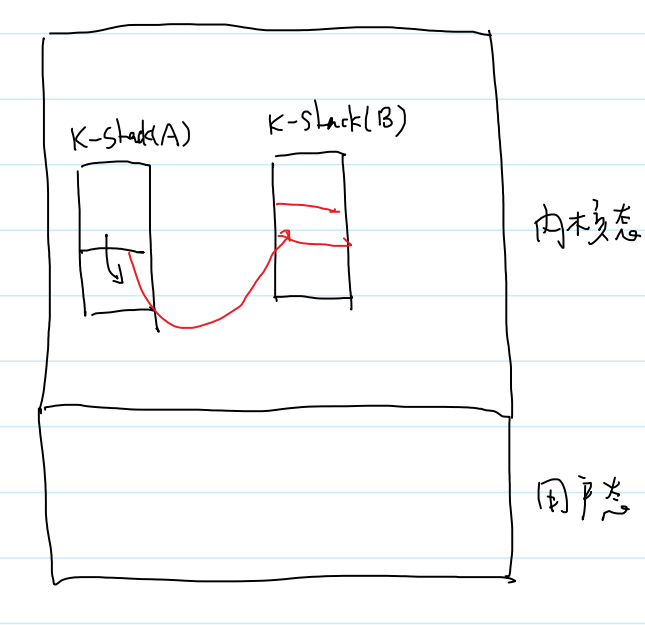 K-Stack(A)
K-Stack(B)
内核态
用户态